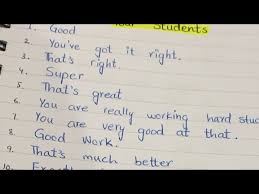 Your Students
1. Good
2. You've got it right.
3. That's right.
4. Super
5. That's great
6. You are really working hard stud
7. You are very good at that.
8. Good Work.
9. That's much better
10.